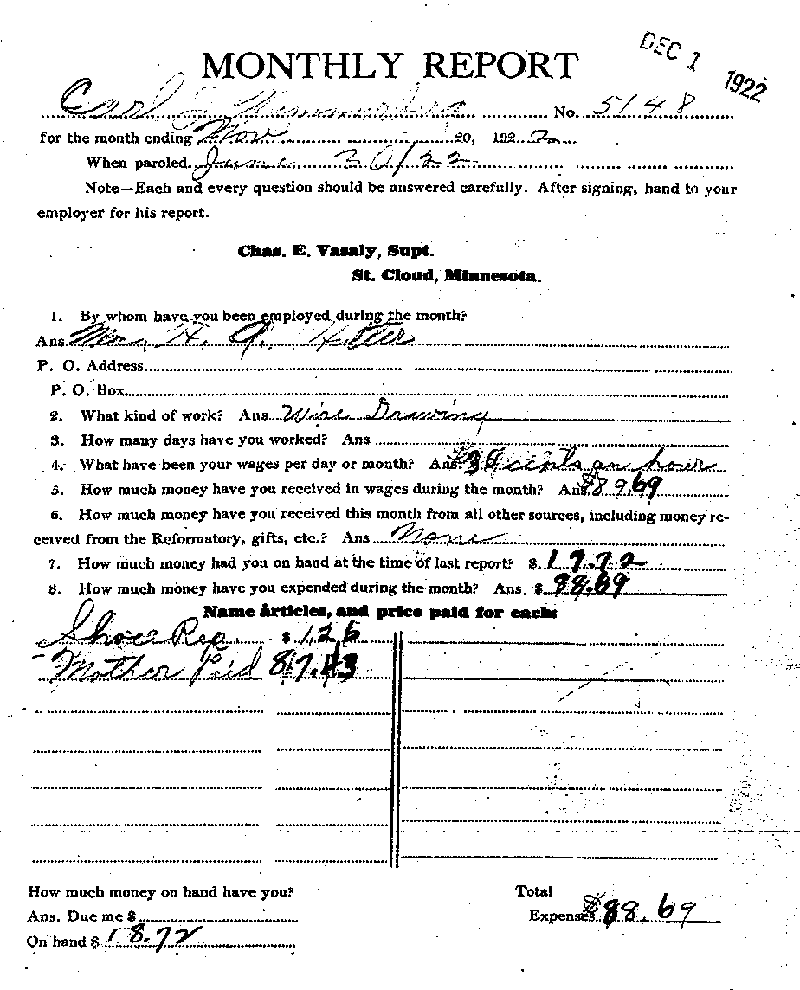 DEC 1 1922
MONTHLY REPORT
Carl No. 5148
for the month ending Nov 30, 1922
When paroled. June 30/22
Note—Each and every question should be answered carefully. After signing, hand to your
employer for his report.
Chas. E. Vasaly, Supt.
St. Cloud, Minnesota.
1. By whom have you been employed during the month?
Ans. H. A.
P. O. Address
P. O. Box
2. What kind of work? Ans. Wire Drawing
3. How many days have you worked? Ans
4. What have been your wages per day or month? Ans. cents an hour
5. How much money have you received in wages during the month? Ans. $89.69
6. How much money have you received this month from all other sources, including money re-
ceived from the Reformatory, gifts, etc.? Ans None
7. How much money had you on hand at the time of last report? $ 17.72
8. How much money have you expended during the month? Ans. $ 88.69
Name Articles, and price paid for each:
Shoes Rep $ 1.26
Mother Paid 87.43
How much money on hand have you?
Total
Ans. Due me $
Expenses $88.69
On hand $ 18.72